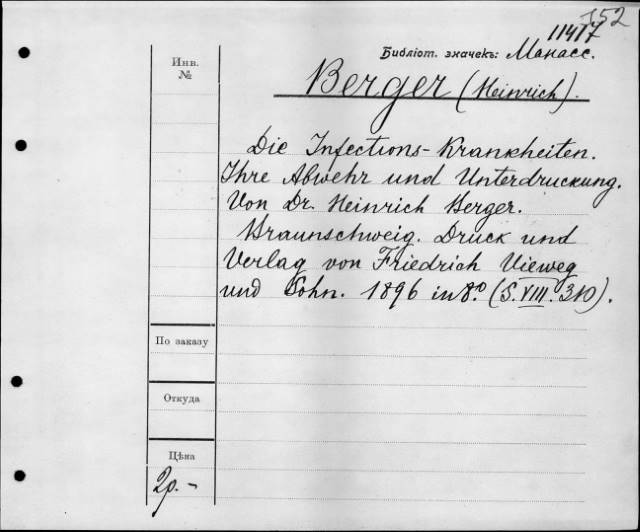 352
11417
Библіот. значекъ: Манасс.
Инв.
№
Berger (Heinrich).
Die Infections-Krankheiten.
Ihre Abwehr und Unterdruckung.
Von Dr. Heinrich Berger.
Braunschweig. Druck und
Verlag von Friedrich Vieweg
und Sohn. 1896 in 8.º (S. VIII. 310).
По заказу
Откуда
Цѣна
2р. -